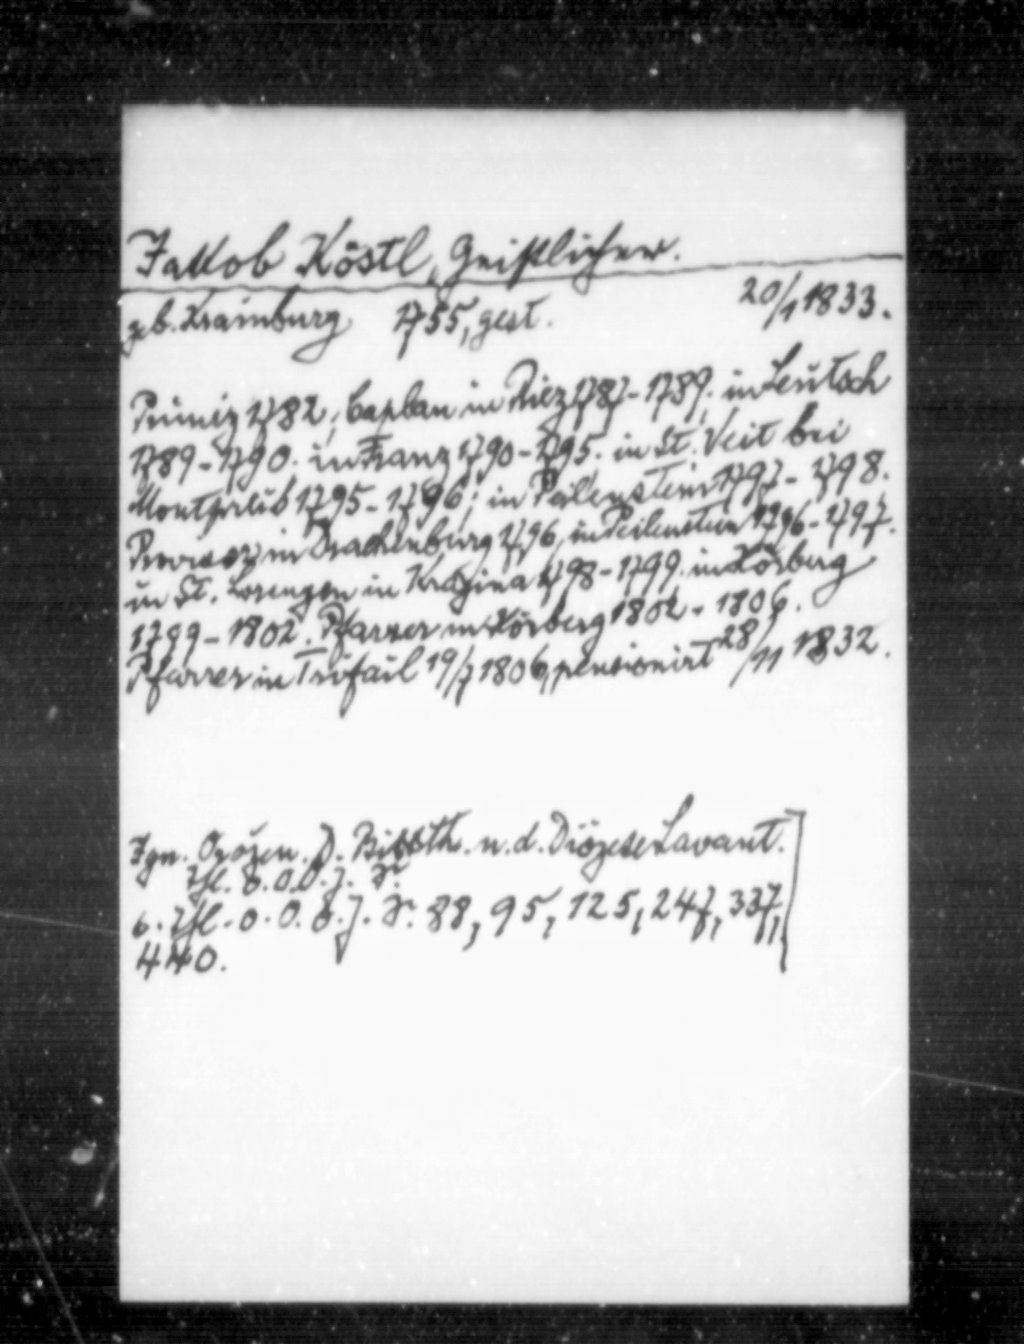 Jakob Köstl, Geistlicher.
geb. Krainburg 1755, gest. 20/1 1833.
Primiz 1782, Caplan in Riez 1787-1789. in Leutsch
1789-1790. in Franz 1790-1795. in St. Veit bei
Montpreis 1795-1796; in Peilenstein 1797-1798.
Provisor in Drachenburg 1796, in Peilenstein 1796-1797.
in St. Lorenzen in 1798-1799. in Hörberg
1799-1802. Pfarrer in Hörberg 1802-1806.
Pfarrer in Trifail 19/7 1806, pensionirt 28/11 1832.
Ign. Orožen. D. Bisth. u. d. Diözese Lavant.
88, 95, 125, 247, 337,
440.